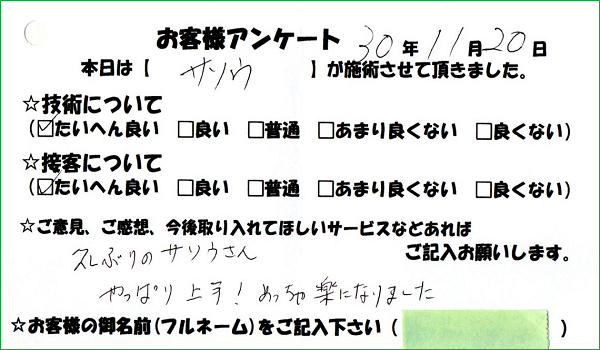 お客様アンケート 30年11月20日
本日は【 サソウ 】が施術させて頂きました。
☆技術について
(☑たいへん良い □良い □普通 □あまり良くない □良くない)
☆接客について
(☑たいへん良い □良い □普通 □あまり良くない □良くない)
☆ご意見、ご感想、今後取り入れてほしいサービスなどあれば
ご記入お願いします。
久しぶりのサソウさん
やっぱり上手！めっちゃ楽になりました
☆お客様の御名前(フルネーム)をご記入下さい(
)